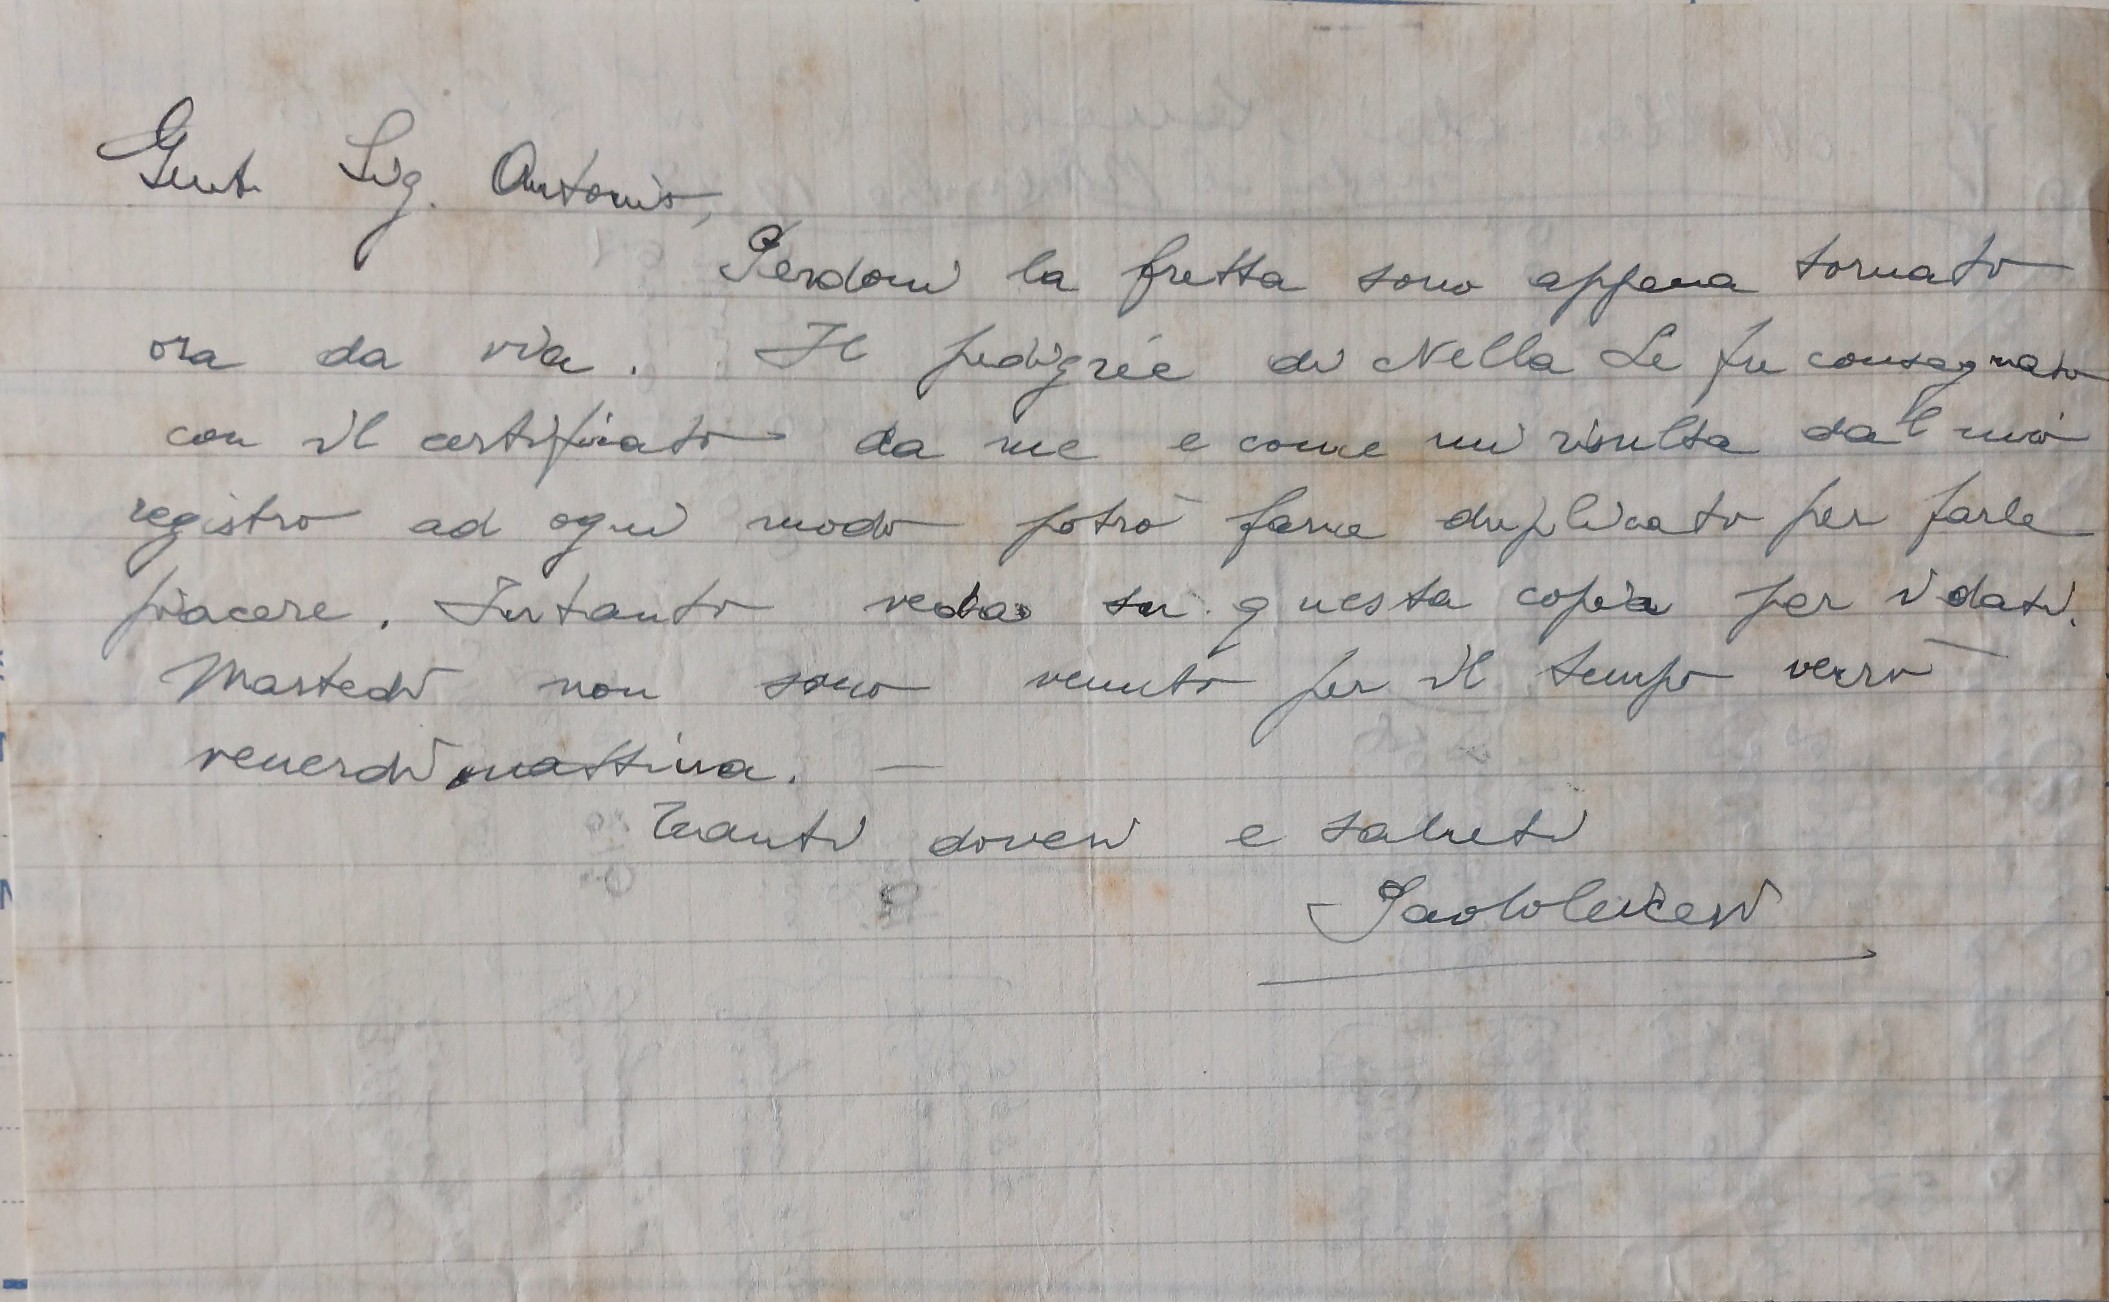 Gent. Sig. Antonio,
Perdoni la fretta sono appena tornato
ora da via. Il pedigrée di Nella Le fu consegnato
con il certificato da me e come mi risulta dal mio
registro ad ogni modo potrò farne duplicato per farle
piacere. Intanto veda su questa copia per i dati.
Martedì non sono venuto per il tempo verrò
venerdì mattina. —
Tanti doveri e saluti